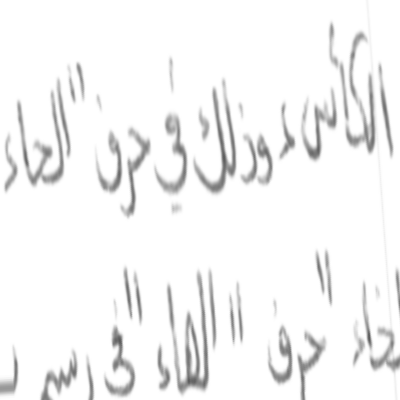 الكأس، وذلك في حرف "الحاء
لخاء" حرف "الهاء" في رسم